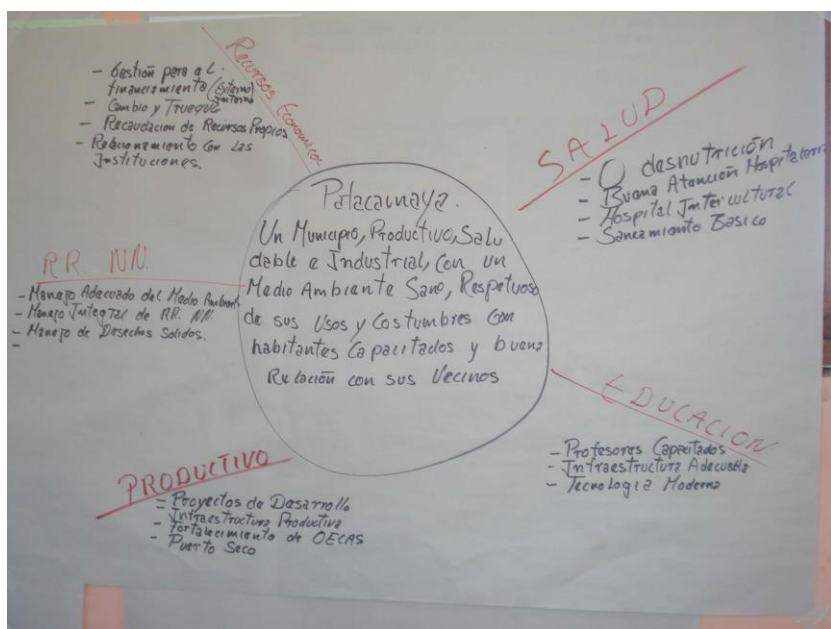 Recursos Economicos
- Gestión para el
financiamiento (Externo
Interno
- Cambio y Trueque
- Recaudacion de Recursos Propios
- Relacionamiento Con Las
Instituciones.
SALUD
- O desnutrición
- Buena Atención Hospitalaria
- Hospital Intercultural
- Saneamiento Basico
Patacamaya.
Un Municipio, Productivo, Salu
dable e Industrial, Con un
Medio Ambiente Sano, Respetuoso
de sus Usos y Costumbres Con
habitantes Capacitados y buena
Relación con sus Vecinos
RR. NN.
- Manejo Adecuado del Medio Ambient
- Manejo Integral de RR. NN.
- Manejo de Desechos Solidos.
-
EDUCACION
- Profesores Capacitados
- Infraestructura Adecuada
- Tecnologia Moderna
PRODUCTIVO
- Proyectos de Desarrollo
- Infraestructura Productiva
- Fortalecimiento de OECAS
- Puerto Seco